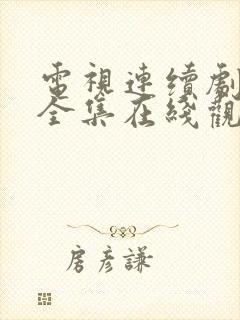 電視連續劇
全集在綫觀
房彥謙